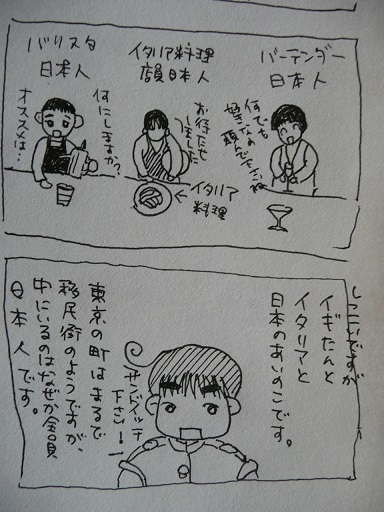 バーテンダー
日本人
何でも
好きなの
頼んで下さいね
イタリア料理
店員日本人
お待たせ
しました
←イタリア
料理
バリスタ
日本人
何にしますか?
オススメは…
しつこいですが
イギたんと
イタリアと
日本のあいのこです。
サンドイッチ
下さいー!
東京の町はまるで
移民街のようですが、
中にいるのはなぜか全員
日本人です。